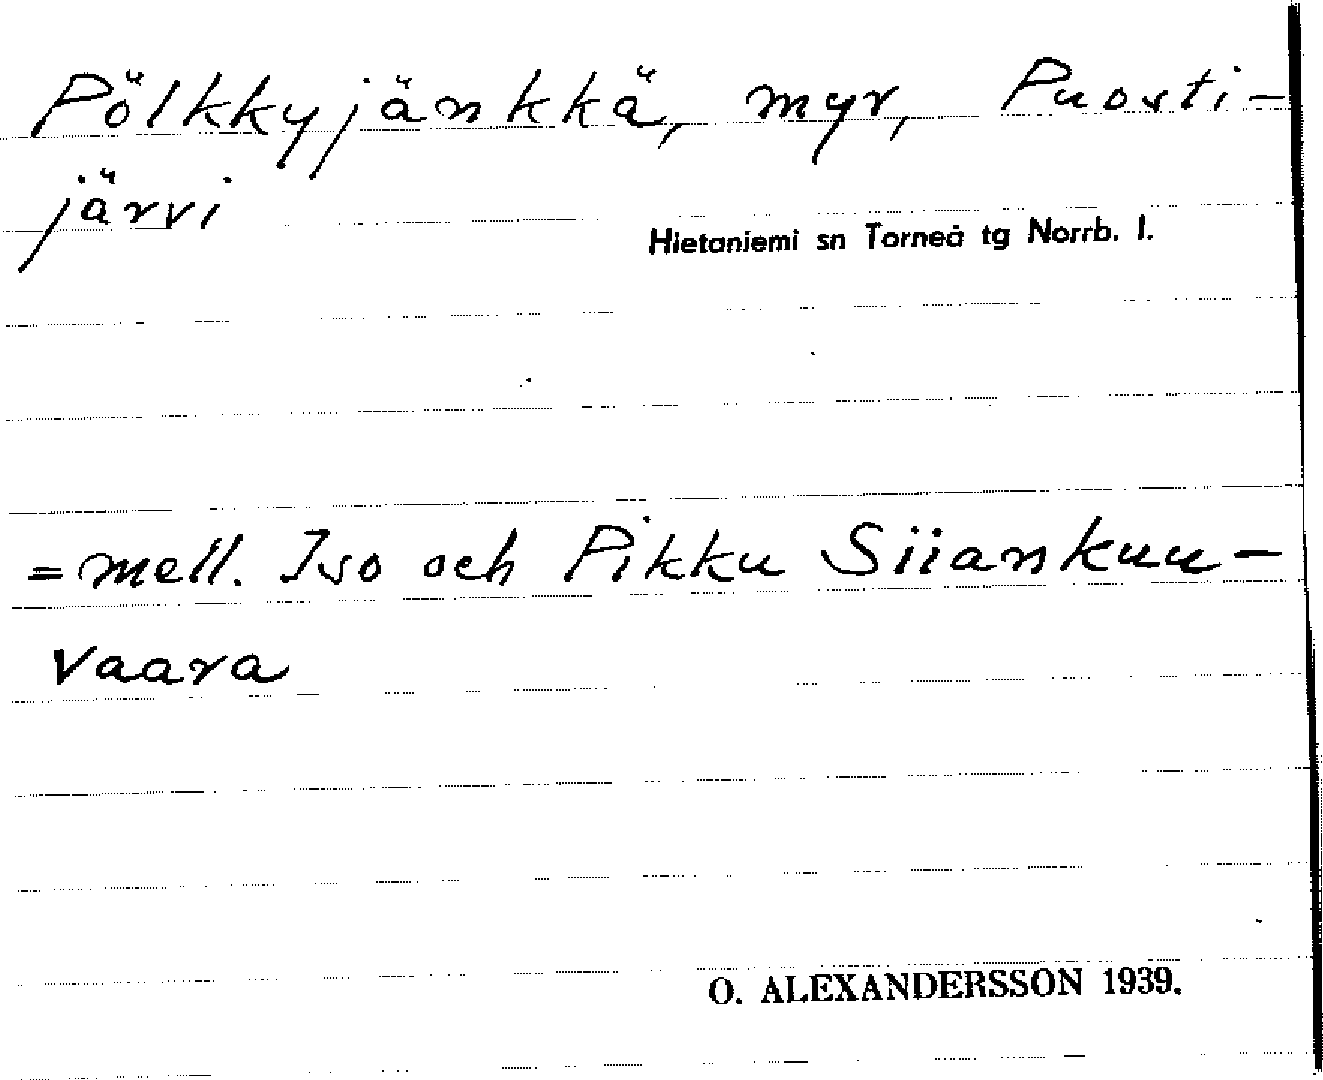 Pölkkyjänkkä, myr, Puosti-
järvi
Hietaniemi sn Torneå tg Norrb. l.
=mell. Iso och Pikku Siiankuu-
vaara
O. ALEXANDERSSON 1939.